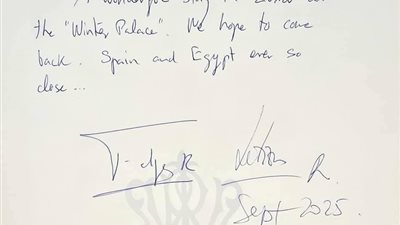 A wonderful stay in
the "Winter Palace". We hope to come
back. Spain and Egypt ever so
close...
Felipe R Letizia R.
Sept 2025.